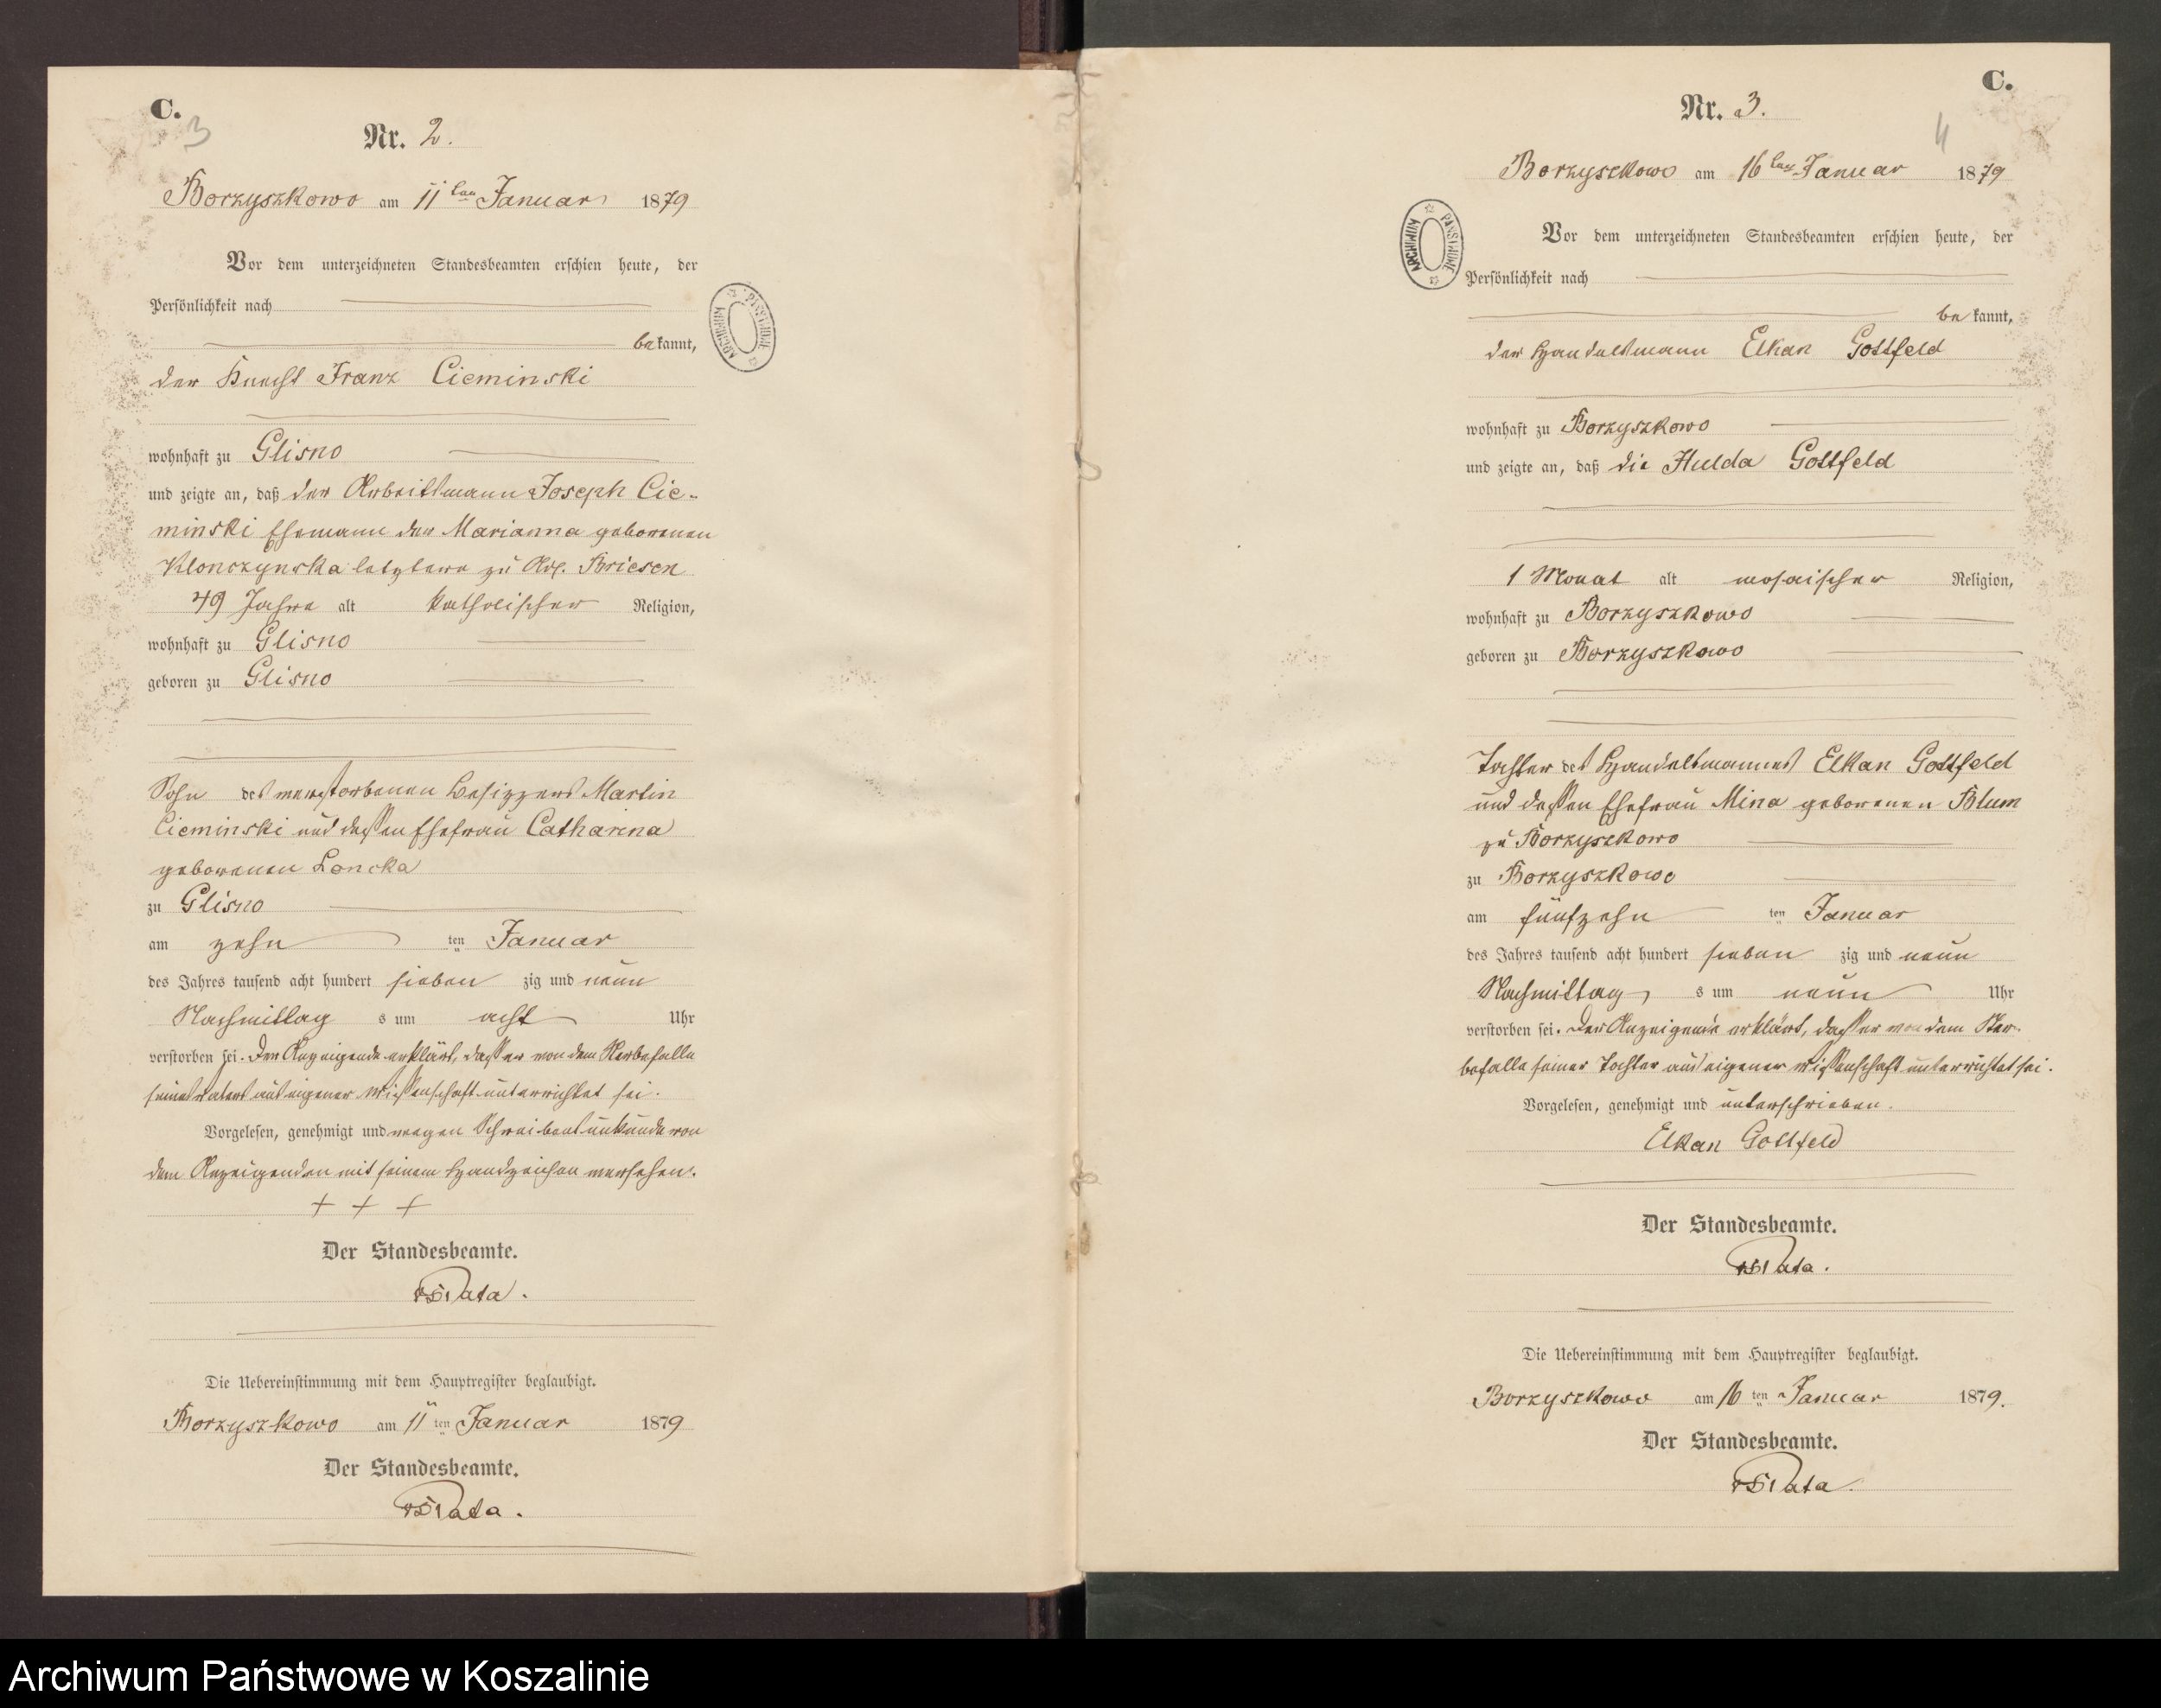 C.
3
Nr. 2.
Borzyszkowo am 11ten Januar 1879
Vor dem unterzeichneten Standesbeamten erschien heute, der
Persönlichkeit nach
bekannt,
der Knecht Franz Cieminski
wohnhaft zu Glisno
und zeigte an, daß der Arbeitsmann Joseph Cie-
minski Ehemann der Marianna geborenen
Klonczynska letztere zu Adl. Briesen
49 Jahre alt katholischer Religion,
wohnhaft zu Glisno
geboren zu Glisno
Sohn des verstorbenen Besitzers Martin
Cieminski und dessen Ehefrau Catharina
geborenen Loncka
zu Glisno
am zehn ten Januar
des Jahres tausend acht hundert sieben zig und neun
Nachmittag s um acht Uhr
verstorben sei. Der Anzeigende erklärt, dass er von dem Sterbefalle
seines Vaters aus eigener Wissenschaft unterrichtet sei.
Vorgelesen, genehmigt und wegen Schreibensunkunde von
dem Anzeigenden mit seinem Handzeichen versehen.
+ + +
Der Standesbeamte.
Die Uebereinstimmung mit dem Hauptregister beglaubigt.
Borzyszkowo am 11 ten Januar 1879
Der Standesbeamte.
ARCHIWUM PAŃSTWOWE
C.
4
Nr. 3.
Borzyszkowo am 16ten Januar 1879
Vor dem unterzeichneten Standesbeamten erschien heute, der
Persönlichkeit nach
bekannt,
der Handelsmann Elkan Gottfeld
wohnhaft zu Borzyszkowo
und zeigte an, daß die Hulda Gottfeld
1 Monat alt mosaischer Religion,
wohnhaft zu Borzyszkowo
geboren zu Borzyszkowo
Tochter des Handelsmannes Elkan Gottfeld
und dessen Ehefrau Mina geborenen Blum
zu Borzyszkowo
zu Borzyszkowo
am fünfzehn ten Januar
des Jahres tausend acht hundert sieben zig und neun
Nachmittag s um neun Uhr
verstorben sei. Der Anzeigende erklärt, dass er von dem Ster-
befalle seiner Tochter aus eigener Wissenschaft unterrichtet sei.
Vorgelesen, genehmigt und unterschrieben.
Elkan Gottfeld
Der Standesbeamte.
Die Uebereinstimmung mit dem Hauptregister beglaubigt.
Borzyszkowo am 16 ten Januar 1879.
Der Standesbeamte.
ARCHIWUM PAŃSTWOWE
Archiwum Państwowe w Koszalinie